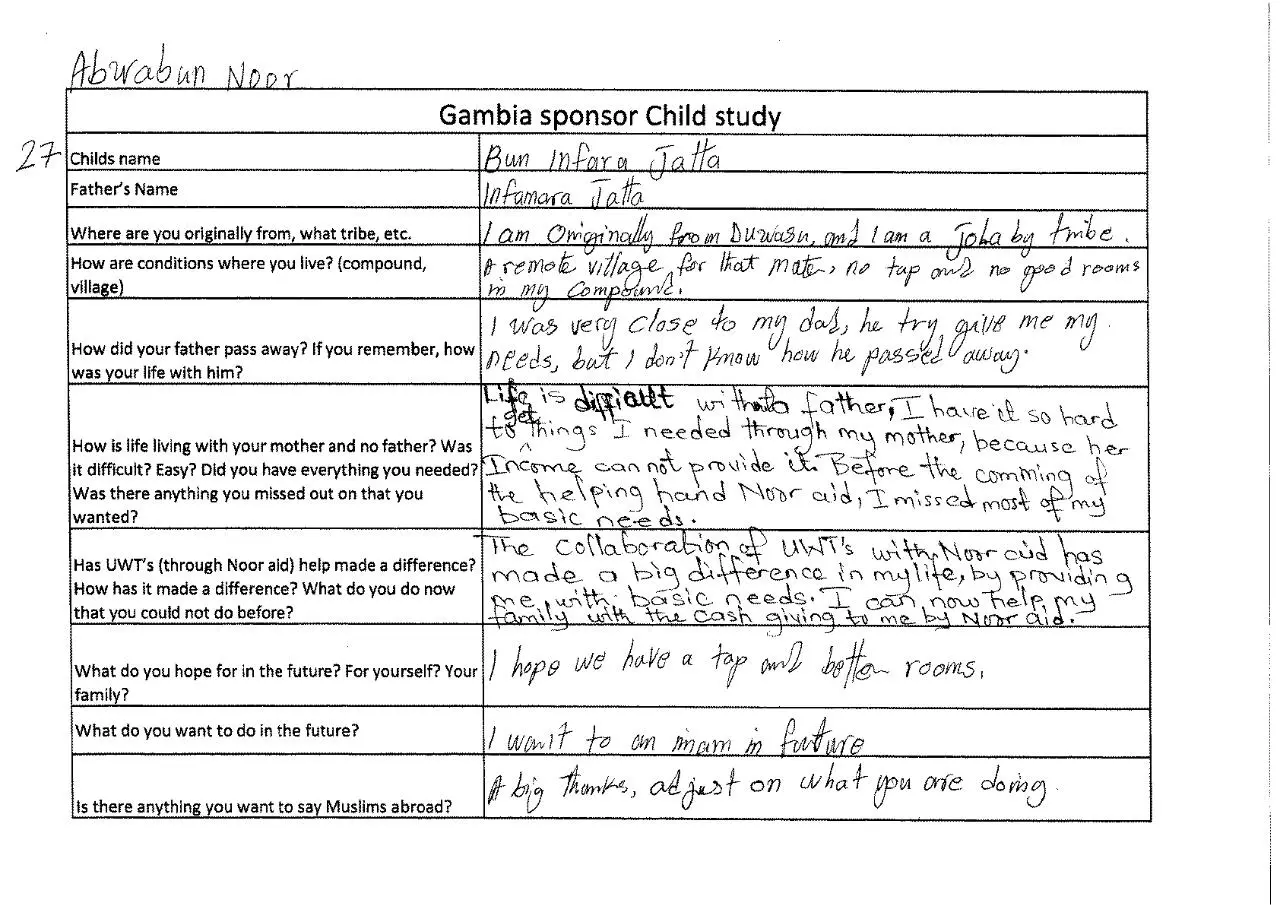 Abwabun Noor
Gambia sponsor Child study
27
Childs name
Bun Infara Jatta
Father's Name
Infamara Jatta
Where are you originally from, what tribe, etc.
I am Originally from Duwasu, and I am a Jola by tribe.
How are conditions where you live? (compound,
village)
A remote village for that mate, no tap and no good rooms
in my Compound.
How did your father pass away? If you remember, how
was your life with him?
I was very close to my dad, he try give me my
needs, but I don't know how he passed away.
How is life living with your mother and no father? Was
it difficult? Easy? Did you have everything you needed?
Was there anything you missed out on that you
wanted?
Life is difficult without father, I have it so hard
to get things I needed through my mother, because her
Income can not provide it. Before the comming of
the helping hand Noor aid, I missed most of my
basic needs.
Has UWT's (through Noor aid) help made a difference?
How has it made a difference? What do you do now
that you could not do before?
The collaboration of UWT's with Noor aid has
made a big difference in my life, by providing
me with basic needs. I can now help my
family with the cash giving to me by Noor aid.
What do you hope for in the future? For yourself? Your
family?
I hope we have a tap and better rooms.
What do you want to do in the future?
I want to an imam in future
Is there anything you want to say Muslims abroad?
A big thanks, adjust on what you are doing.